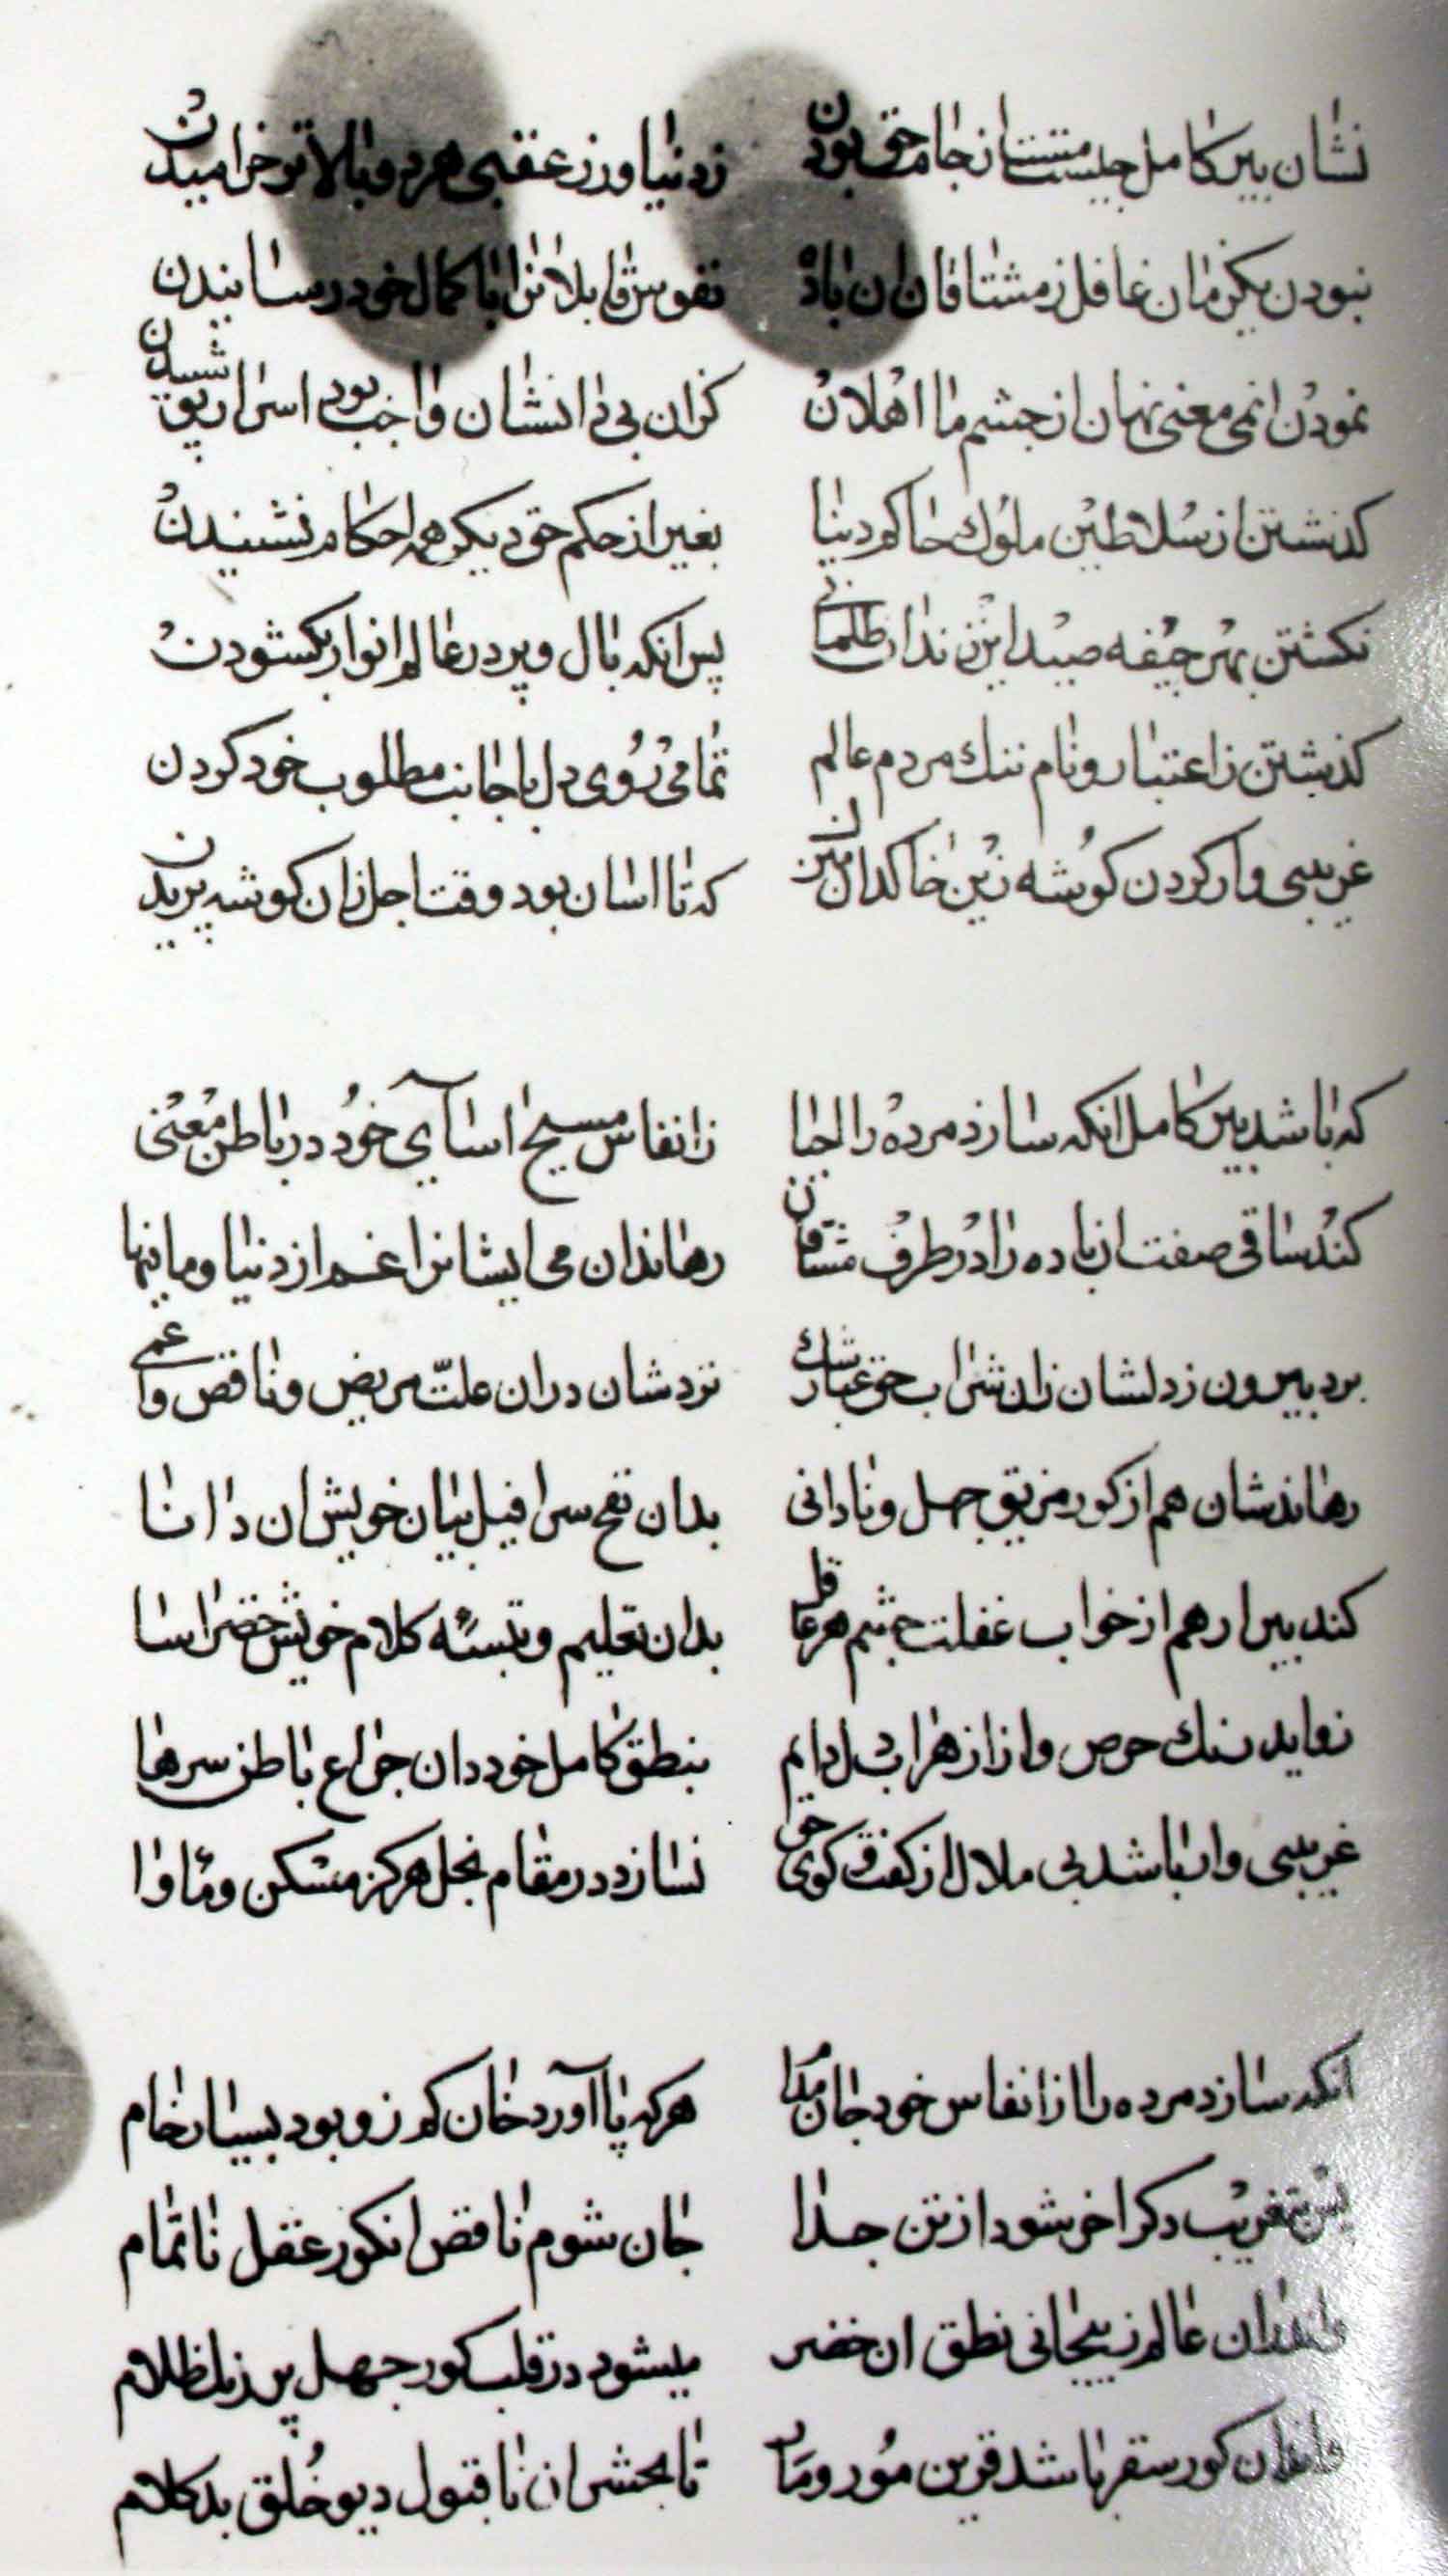 نشان بیر کامل چیست مست از جام حق بودن زدنیا و زعقبی هر دو بالاتر خرامیدن
نبودن یکزمان غافل ز مشتاقان ان باده نفوس قابلانرا با کمال خود رسانیدن
نمودن انمی معنی نهان از چشم نا اهلان کزان بی دانشان واجب بود اسرار پوشیدن
کذشتن از سلاطین ملوک خاکم دنیا بغیر از حکم حق دیکر همه احکام نشنیدن
نکشتن بهر جیفه صید این زندان ظلمانی پس انکه بال و پر در عالم انوار بکشودن
کذشتن ز اعتبار و نام ننک مردم عالم تمامی روی دل با جانب مطلوب خود کردن
غریبی وار کردن کوشه زین خاکدان منزل که تا اسان بود وقت اجل زان کوشه پریدن
که باشد بیر کامل انکه سازد مرده را احیا ز انفاس مسیح اسای خود در باطن معنی
کند ساقی صفت ان باده را در طرف مشتاقان رهاند ان می ایشانرا غم از دنیا و مافیها
برد بیرون ز دلشان زان شراب حق غبار شک نزد شان دران علت مریض و ناقص و اعمی
رهاندشان هم از کور مزیق جهل و نادانی بدان نفح سرافیل بیان خویش ان دانا
کند بیدار هم از خواب غفلت چشم هر غافل بدان تعلیم و تبسئه کلام خویش خضر اسا
زداید زنك حرص و از از هر اب دل دایم بنطق کامل خود دان چراغ باطن سرها
غریبی وار باشد بی ملال از کفت کوی حق نسازد در مقام بخل هرکز مسکن و مأوا
انکه سازد مرده را از انفاس خود جان مدام هر که با آورد خان کم زو بود بسیار خام
بتغریب دکر اخر شود از تن جدا جان شوم ناقص انکور عقل ناتمام
ان عالم ز بیجانی نطق ان خضر میشود در قلب کور جهل پر زبل ظلام
ان کور سقر باشد قرین مور و مار تا بحشر ان ناقبول دیو خلق بد کلام